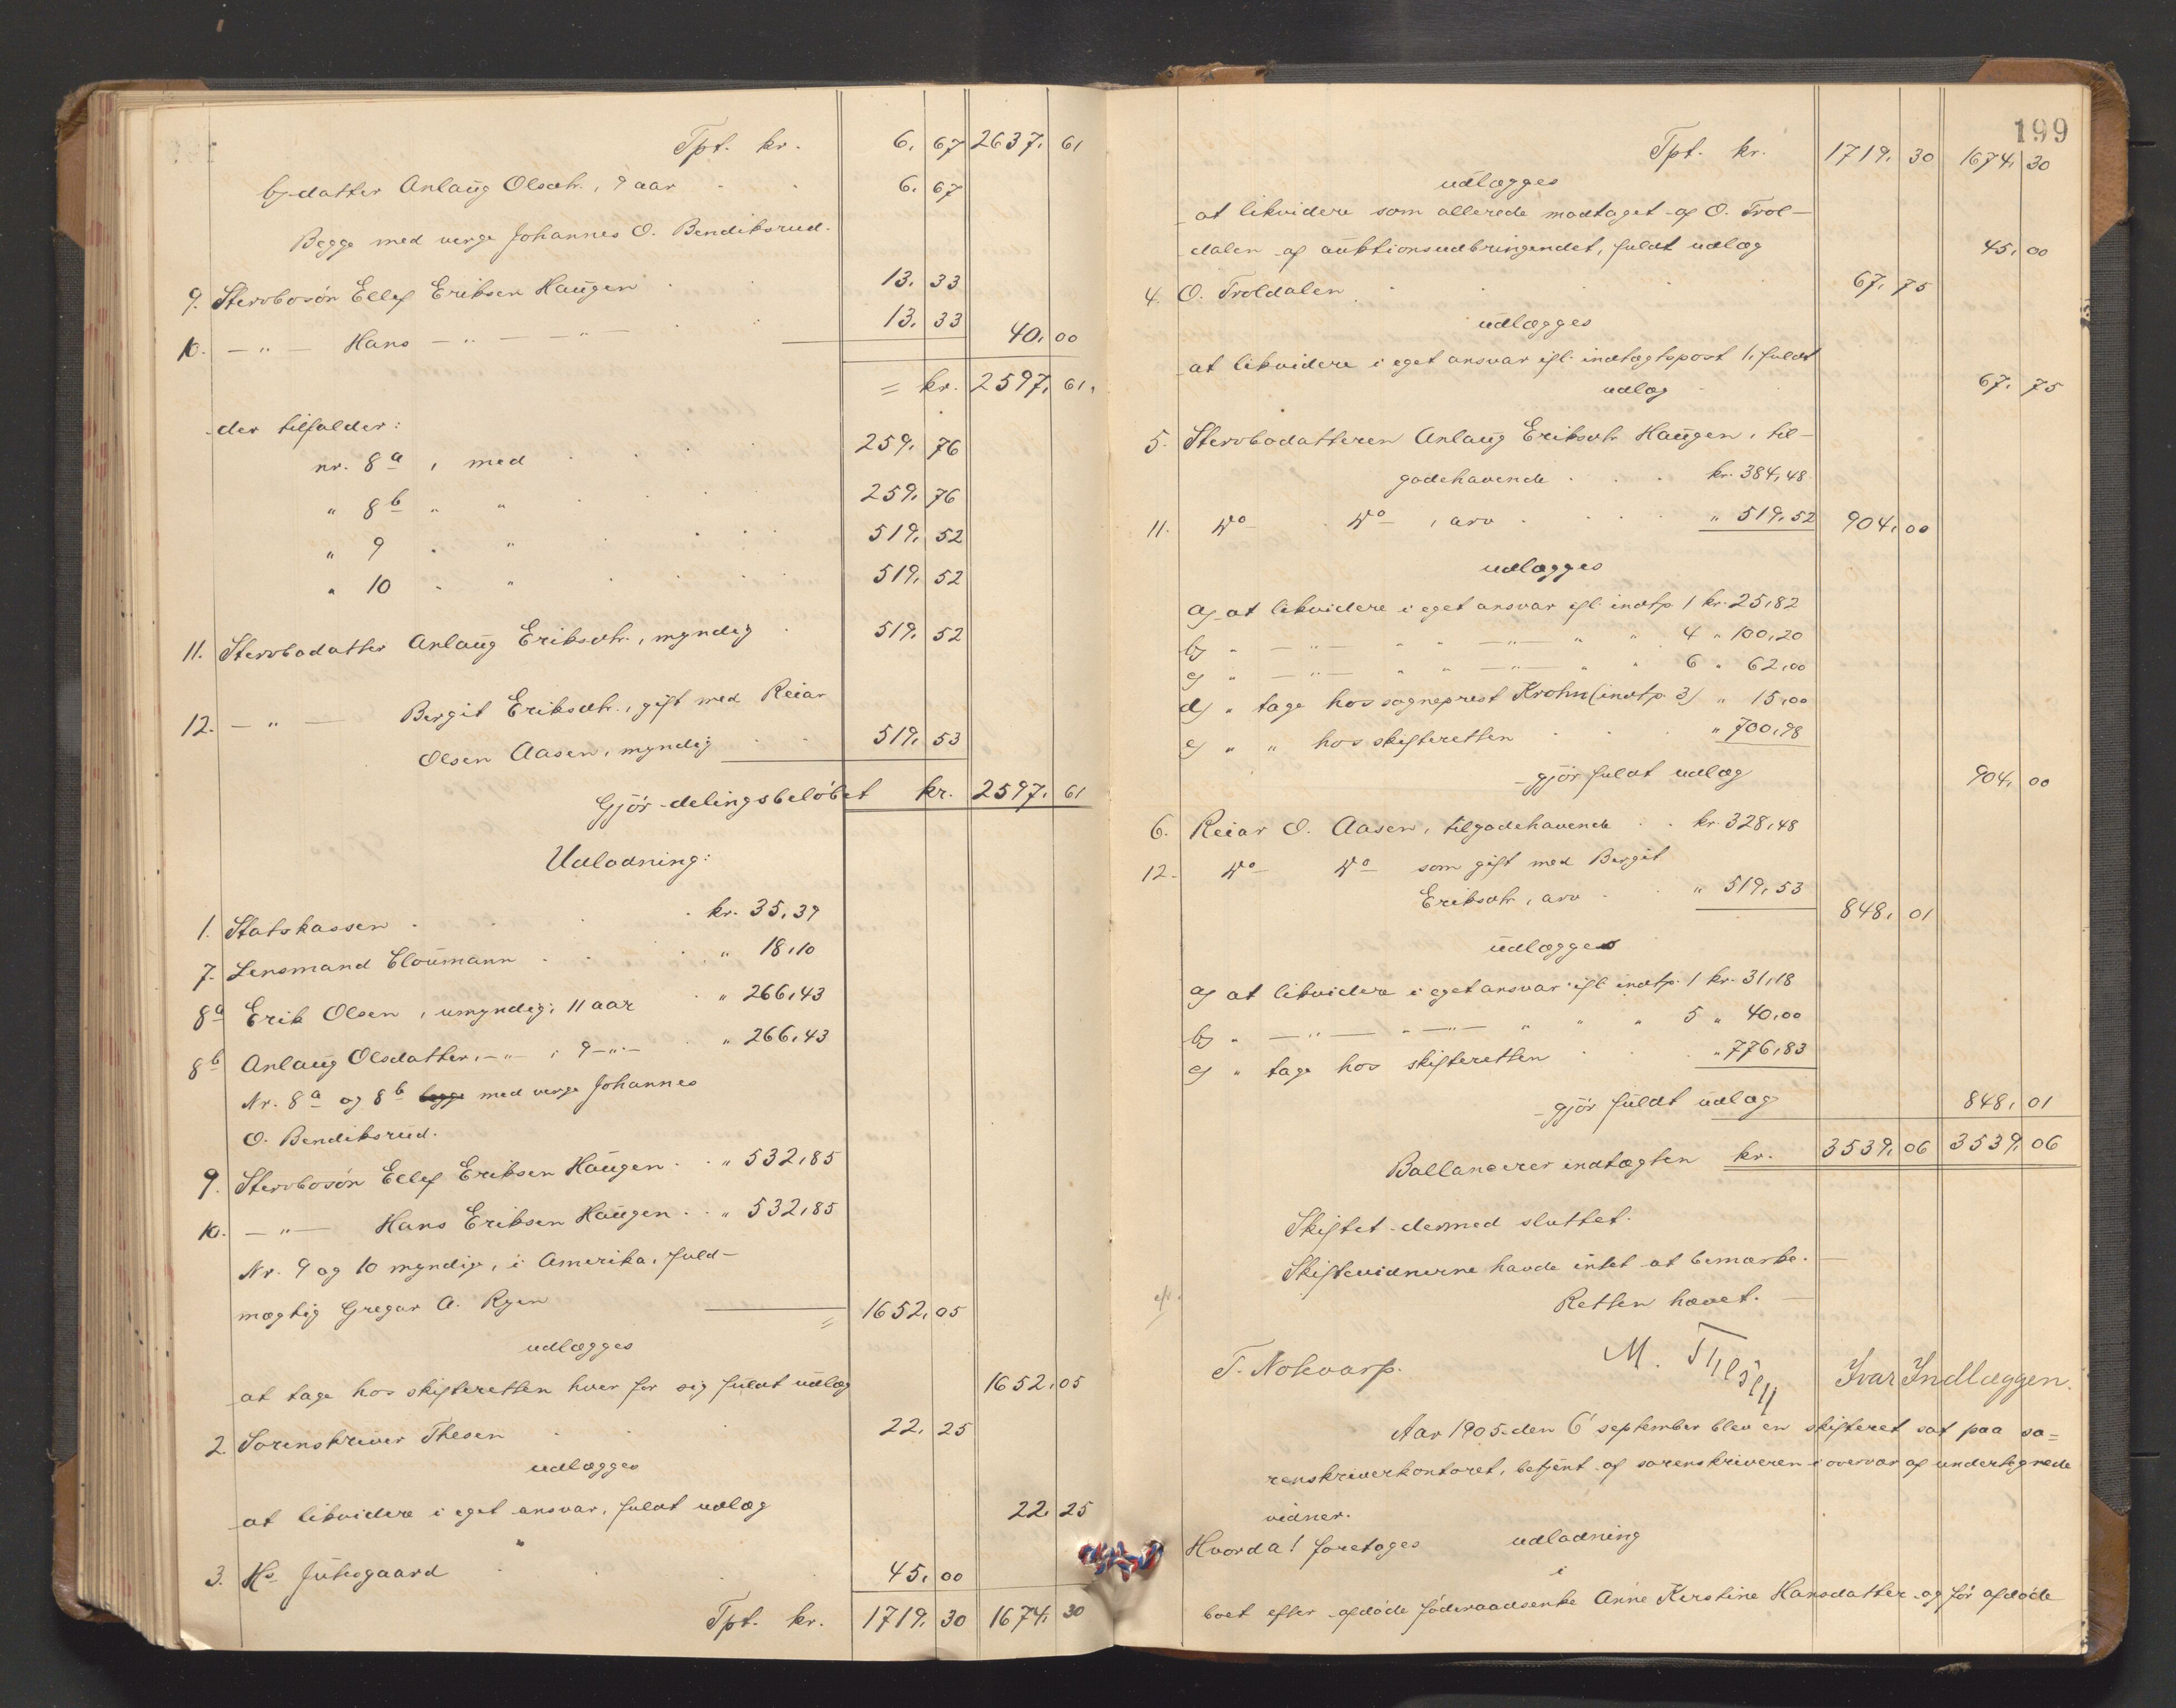 Tpt. kr. 6, 67 2637, 61
b, datter Anlaug Olsdtr., 9 aar 6, 67
Begge med verge Johannes O. Bendiksrud.
9. Stervbosön Ellef Eriksen Haugen 13, 33
10. —"— Hans —"— —"— 13, 33 40, 00
= kr. 2597, 61,
der tilfalder:
nr. 8a, med 259, 76
" 8b " " 259, 76
" 9 " " 519, 52
" 10 " " 519, 52
11. Stervbodatter Anlaug Eriksdtr., myndig 519, 52
12. —"— Bergit Eriksdtr., gift med Reiar
Olsen Aasen, myndig 519, 53
Gjör delingsbelöbet kr. 2597, 61
Udlodning:
1. Statskassen kr. 35,39
7. Lensmand Cloumann " 18,10
8a Erik Olsen, umyndig, 11 aar " 266,43
8b Anlaug Olsdatter, —"—, 9 —"— " 266,43
Nr. 8a og 8b begge med verge Johannes
O. Bendiksrud.
9. Stervbosön Ellef Eriksen Haugen " 532,85
10. —"— Hans Eriksen Haugen " 532,85
Nr. 9 og 10 myndige, i Amerika, fuld-
mægtig Gregar A. Ryen = 1652, 05
udlægges
at tage hos skifteretten hver for sig fuldt udlæg 1652, 05
2. Sorenskriver Thesen 22, 25
udlægges
at likvidere i eget ansvar, fuldt udlæg 22, 25
3. Hs. Juhogaard 45, 00
Tpt. kr. 1719, 30 1674, 30
199
Tpt. kr. 1719, 30 1674, 30
udlægges
at likvidere som allerede modtaget af O. Trol-
dalen af auktionsudbringendet, fuldt udlæg 45, 00
4. O. Troldalen 67, 75
udlægges
at likvidere i eget ansvar ifl. indtægtspost 1, fuldt
udlæg 67, 75
5. Stervbodatteren Anlaug Eriksdtr Haugen, til-
godehavende kr. 384,48
11. do do, arv " 519,52 904, 00
udlægges
a, at likvidere i eget ansvar ifl. indtp. 1 kr. 25,82
b, " —"— " " —"— " " 4 " 100,20
c, " —"— " " —"— " " 6 " 62,00
d, " tage hos sogneprest Krohn (indtp. 3) " 15,00
e, " " hos skifteretten " 700,98
gjör fuldt udlæg 904, 00
6. Reiar O. Aasen, tilgodehavende kr. 328,48
12. do do som gift med Bergit
Eriksdtr, arv " 519,53 848, 01
udlægges
a, at likvidere i eget ansvar ifl. indtp. 1 kr. 31,18
b, " —"— " —"— " " " 5 " 40,00
c, " tage hos skifteretten " 776,83
gjör fuldt udlæg 848, 01
Ballancerer indtægten kr. 3539, 06 3539, 06
Skiftet dermed sluttet.
Skiftevidnerne havde intet at bemærke.
Retten hævet.
T. Notevarp. M. Thesen Ivar Indlæggen.
Aar 1905 den 6' september blev en skifteret sat paa so-
renskriverkontoret, betjent af sorenskriveren i overvær af undertegnede
vidner.
Hvorda! foretoges udlodning
i
boet efter afdöde föderaadsenke Anne Kirstine Hansdatter og för afdöde